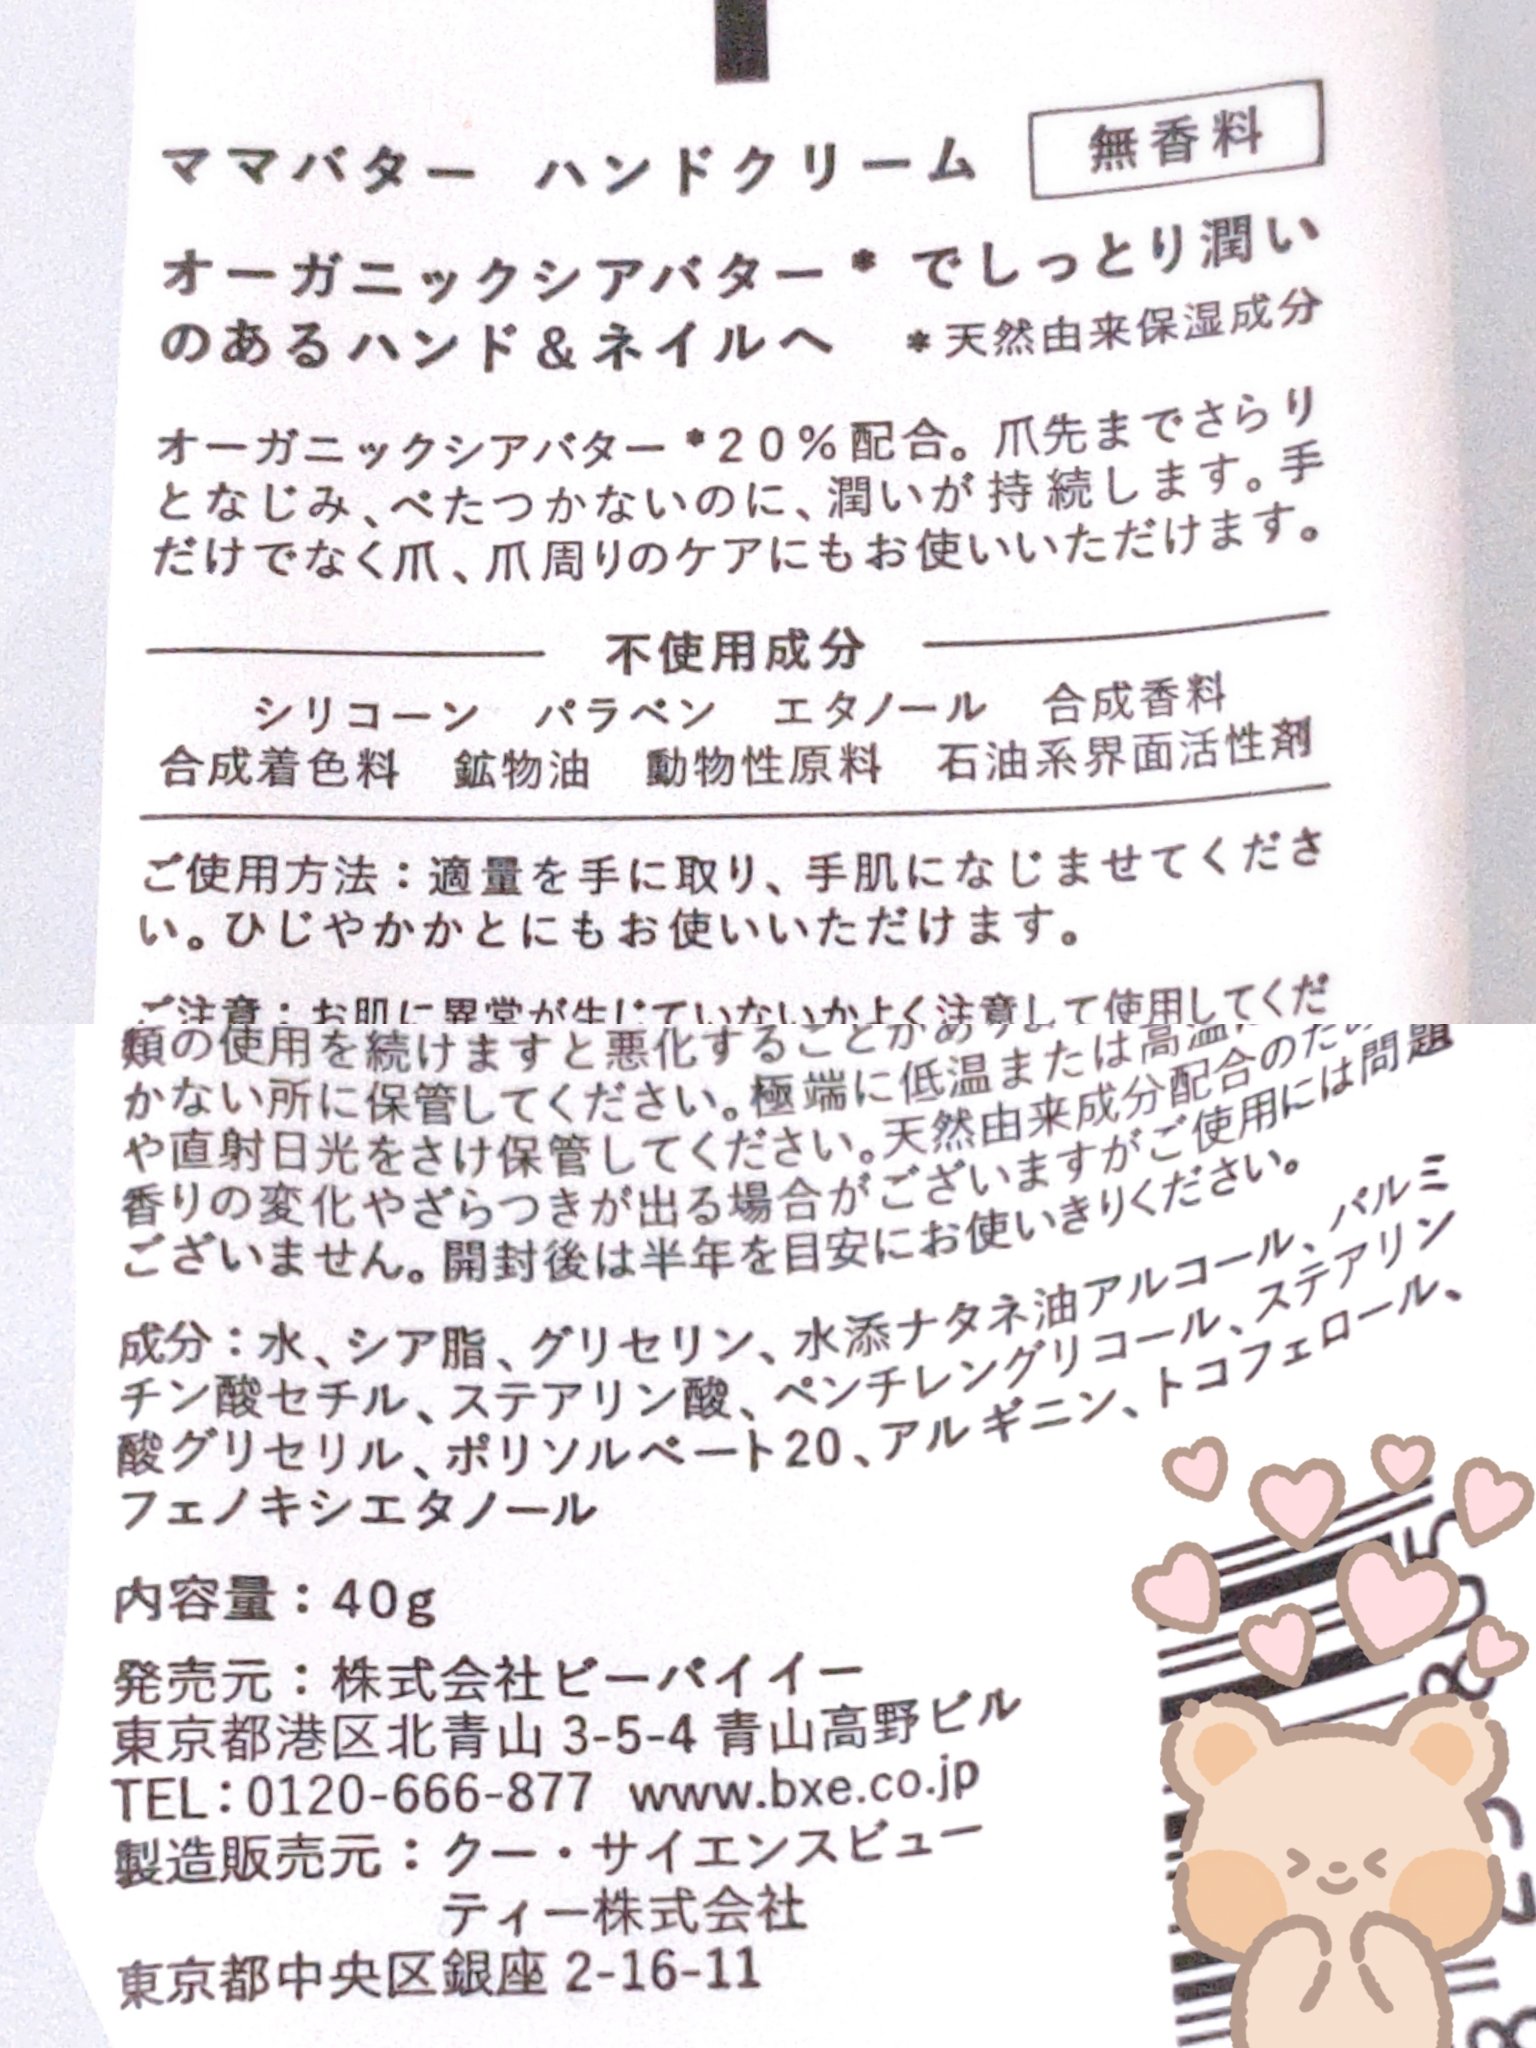 ママバター ハンドクリーム 無香料
オーガニックシアバター＊でしっとり潤い
のあるハンド＆ネイルへ ＊天然由来保湿成分
オーガニックシアバター＊20％配合。爪先までさらり
となじみ、べたつかないのに、潤いが持続します。手
だけでなく爪、爪周りのケアにもお使いいただけます。
不使用成分
シリコーン パラベン エタノール 合成香料
合成着色料 鉱物油 動物性原料 石油系界面活性剤
ご使用方法：適量を手に取り、手肌になじませてくださ
い。ひじやかかとにもお使いいただけます。
ご注意：お肌に異常が生じていないかよく注意して使用してくだ
類の使用を続けますと悪化することがあり
かない所に保管してください。極端に低温または高温
や直射日光をさけ保管してください。天然由来成分配合のため
香りの変化やざらつきが出る場合がございますがご使用には問題
ございません。開封後は半年を目安にお使いきりください。
成分：水、シア脂、グリセリン、水添ナタネ油アルコール、パルミ
チン酸セチル、ステアリン酸、ペンチレングリコール、ステアリン
酸グリセリル、ポリソルベート20、アルギニン、トコフェロール、
フェノキシエタノール
内容量：40g
発売元：株式会社ビーバイイー
東京都港区北青山 3-5-4 青山高野ビル
TEL：0120-666-877 www.bxe.co.jp
製造販売元：クー・サイエンスビュー
ティー株式会社
東京都中央区銀座 2-16-11